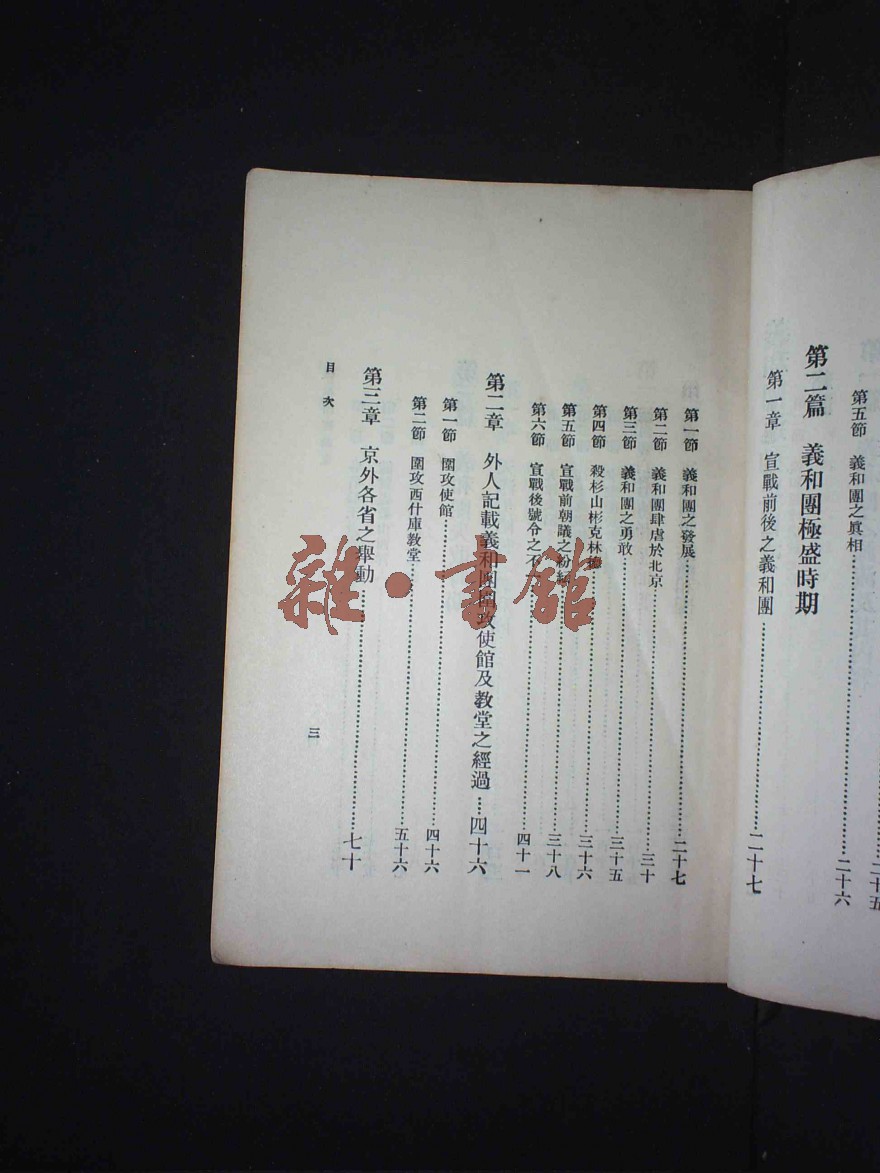 二十五
第五節 義和團之眞相 二十六
第二篇 義和團極盛時期
第一章 宣戰前後之義和團 二十七
第一節 義和團之發展 二十七
第二節 義和團肆虐於北京 三十
第三節 義和團之勇敢 三十五
第四節 殺杉山彬克林德 三十六
第五節 宣戰前朝議之紛 三十八
第六節 宣戰後號令之不 四十一
第二章 外人記載義和團圍攻使館及教堂之經過 四十六
第一節 圍攻使館 四十六
第二節 圍攻西什庫教堂 五十六
第三章 京外各省之舉動 七十
目次
三
雜·書館